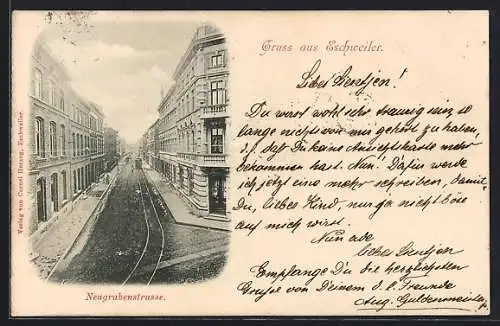 Gruss aus Eschweiler.
Liebes Gentjen!
Du warst wohl sehr traurig weil so
lange nichts von mir gehört zu haben,
daß Du keine Ansichtskarte mehr
bekommen hast. Nun! Dafür werde
ich jetzt eine mehr schreiben, damit
Du, liebes Kind, nur ja nicht böse
auf mich wirst.
Nun ade
liebes Gentjen
Empfange Du die herzlichsten
Grüße von Deinem d. l. Freunde
Aug. Guldenmeister
Neugrabenstrasse.
Verlag von Conrad Herzog, Eschweiler.